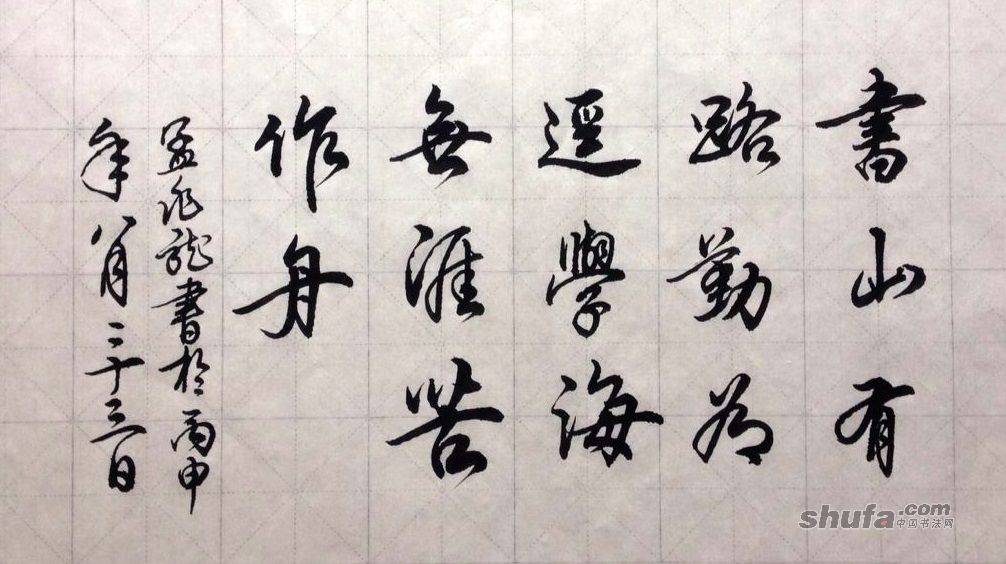 書山有
路勤為
逕學海
無涯苦
作舟
孟兆龍書於丙申
年八月二十三日
shufa.com
中国书法网